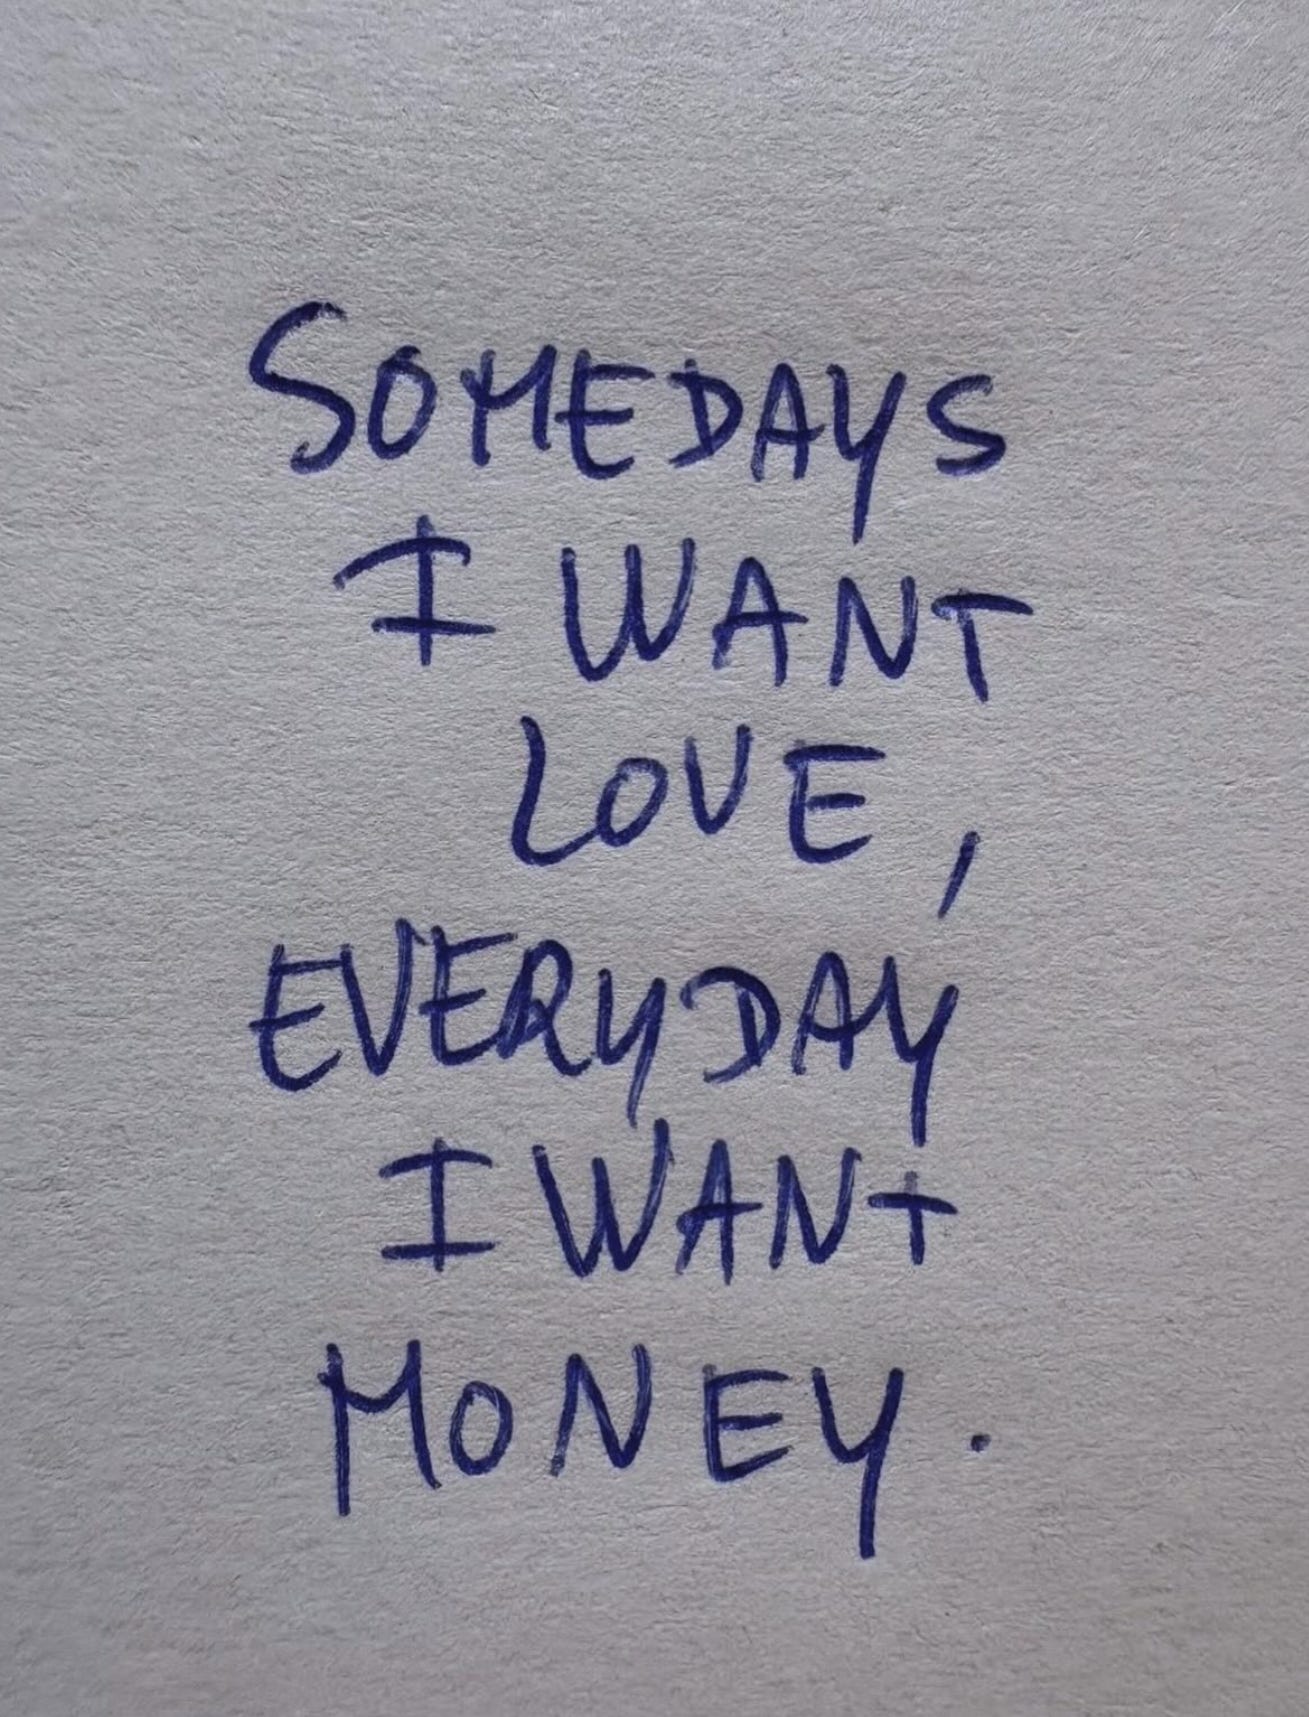 SOMEDAYS
I WANT
LOVE,
EVERYDAY
I WANT
MONEY.